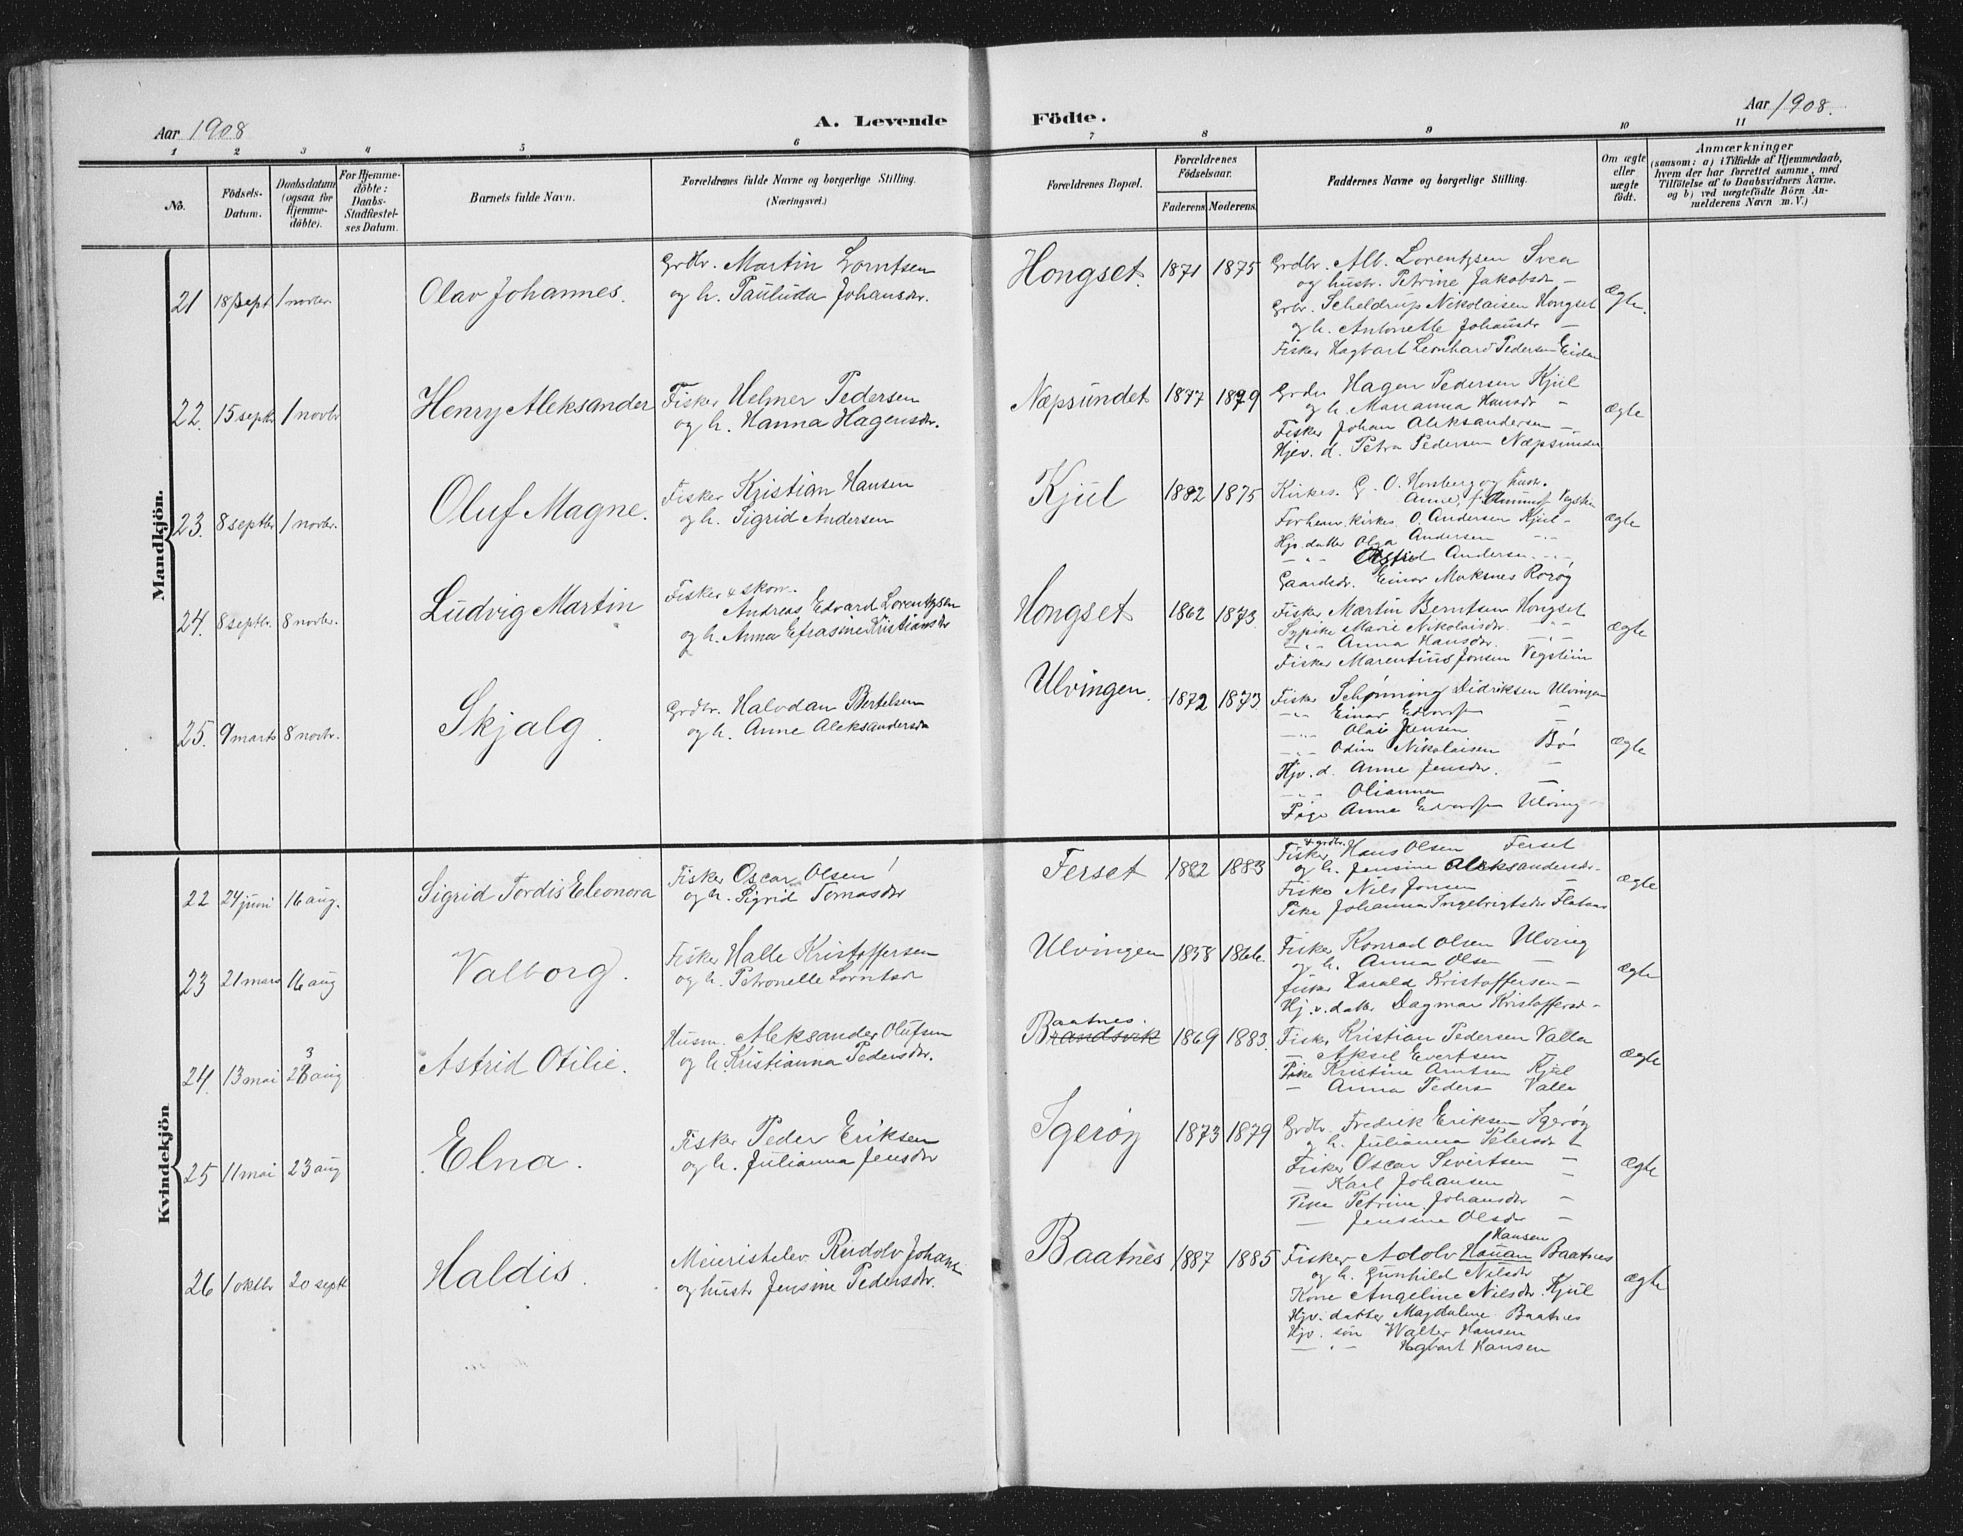 Aar 1908
A. Levende
Födte.
Aar 1908.
1 2 3 4 5 6 7 8 9 10 11
No.
Födsels-
Datum.
Daabsdatum
(ogsaa for
Hjemme-
döbte).
For Hjemme-
döbte:
Daabs-
Stadfæstel-
ses Datum.
Barnets fulde Navn.
Forældrenes fulde Navne og borgerlige Stilling.
(Næringsvei.)
Forældrenes Bopæl.
Forældrenes
Födselsaar.
Faderens. Moderens.
Faddernes Navne og borgerlige Stilling.
Om ægte
eller
uægte
födt.
Anmærkninger
(saasom: a) i Tilfælde af Hjemmedaab,
hvem der har forrettet samme, med
Tilföielse af to Daabsvidners Navne.
og b) ved uægtefödte Börn An-
melderens Navn m. V.)
Mandkjön.
21 18 sept. 1 novbr.
Olav Johannes.
Grdbr. Martin Lorntsen
og h. Pauluda Johansdr.
Hongset. 1871 1875
Grdbr. Alb. Lorentzsen Svea
og hustr. Petrine Jakobsdr –
Grbr. Scheldrup Nikolaisen Hongset
og h. Antonette Johansdr –
Fisker Hagbart Leonhard Pedersen Eiden
Ægte.
22. 15 septbr 1 novbr
Henry Aleksander
Fisker Helmer Pedersen
og h. Hanna Hagensdr.
Næpsundet 1877 1879
Grdbr Hagen Pedersen Kjül
og h. Marianna Hansdr –
Fisker Johan Aleksandersen –
Hjev. d. Petra Pedersen Næpsundet
Ægte
23. 8 septbr 1 novbr.
Oluf Magne.
Fisker Kristian Hansen
og h. Sigrid Andersen
Kjül 1882 1875
Kirkes. G. O. Homberg og hust.
Anne
Forhenv. kirkes. O. Andersen Kjül –
Hjv. datter Olga Andersen – " –
– " – Astrid Andersen – " –
Gaardsdr. Einar Moksnes Rorøy
Ægte
24. 8 septbr. 8 novbr.
Ludvig Martin
Fisker & skom.
Andreas Edvard Lorentzsen
og h. Anna Efrasine Kristiansdr
Hongset 1862 1873.
Fisker Martin Berntsen Hongset
Sypike Marie Nikolaisdr. – " –
– " – Anna Hansdr. – " –
Fisker Marentius Jonsen Vegstein
Ægte
25. 9 marts 8 novbr.
Skjalg.
Grdbr. Halvdan Bertelsen
og h. Anne Aleksandersdr
Ulvingen. 1872 1873.
Fisker Schønning Didriksen Ulvingen
– " – Einar Edvardsen –
– " – Olai Jensen –
– " – Odin Nikolaisen Bø
Hjv. d. Anne Jensdr. –
– " – Olianna –
Pige Anne Edvardsen Ulving –
Ægte
Kvindekjön
22 24 juni 16 aug.
Sigrid Tordis Eleonora
Fisker Oscar Olsen
og h. Sigrid Tomasdr
Ferset 1882 1883
& grdbr.
Fisker Hans Olsen Ferset
og h. Jensine Aleksandersdr. –
Fisker Nils Jonsen –
Pike Johanna Ingebrigtsdr Flatøen
Ægte
23 21 mars 16 aug
Valborg.
Fisker Halle Kristoffersen
og h. Petronelle Lorntsdr
Ulvingen 1858 1866.
Fisker Konrad Olsen Ulving
og h. Anna Olsen –
fisker Harald Kristoffersen –
Hj. v. datter Dagmar Kristoffersdr –
Ægte
24. 13 mai 23 aug
Astrid Otilie.
Husm. Aleksander Olufsen
og h. Kristianna Pedersdr.
Baatnes.
Brandsvik 1869 1883.
Fisker Kristian Pedersen Valla
– Aksel Evertsen –
Pike Kristine Arntsen Kjül
– Anna Peders Valla
Ægte
25 11 mai 23 aug
Elna.
Fisker Peder Eriksen
og h. Julianna Jensdr
Igerøy 1873 1879
Grdbr. Fredrik Eriksen Igerøy
og h. Julianna Petersdr –
Fisker Oscar Sivertsen –
– Karl Johansen –
Pike Petrine Johansdr –
– Jensine Olsdr –
Ægte
26 1 oktbr 20 septbr
Haldis.
Meieristelev Rudolv Johans
og hustr Jensine Pedersdr.
Baatnes 1887 1885
Hansen
Fisker Adolv Hauan Baatnes
og h. Gunhild Nilsdr
Kone Angeline Nilsdr. Kjül
Hjv. datter Magdalene Baatnes
Hjv. søn Walter Hansen
– " – Hagbart Hansen
Ægte